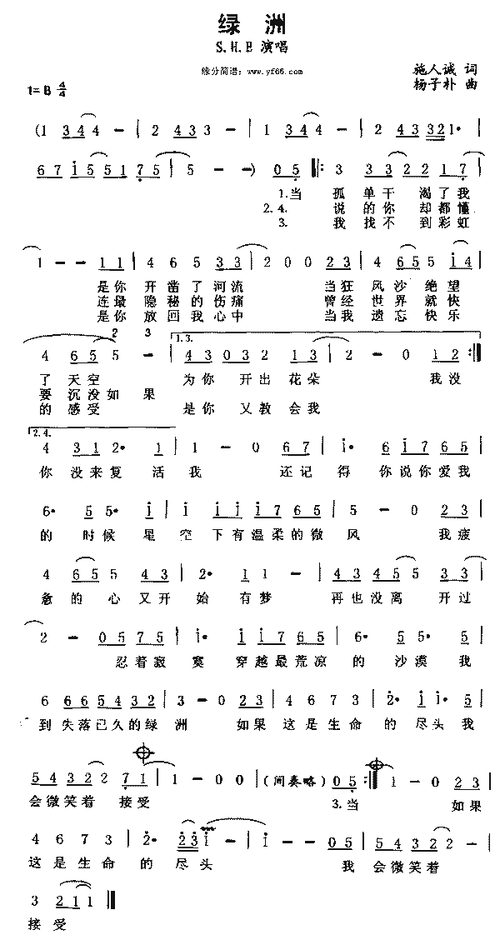 绿洲
S.H.E 演唱
缘分简谱：www.yf66.com
施人诚 词
杨子朴 曲
1=B 4/4
(1 3 4 4 - | 2 4 3 3 - | 1 2 4 4 - | 2 4 4 3 3 2 1 ·
6 7 1 5 5 1 7 5 | 5 - - -) 0 5 |: 3 3 3 2 2 1 7 |
1.当 孤单干渴了我
2.4. 说的你却都懂
3. 我找不到彩虹
1 - - 1 1 | 4 6 5 3 3 | 2 0 0 2 3 | 4 6 5 5 1 4 |
是你 开凿了河流 当狂 风沙绝望
连最 隐秘的伤痛 曾经 世界就快
是你 放回我心中 当我 遗忘快乐
2 3
1.3.
4 6 5 5 - | 4 3 0 3 2 1 3 | 2 - 0 1 2 :|
了天空 为你 开出花朵 我没
要沉没如果
的感受 是你 又教会我
2.4.
4 3 1 2 · 1 | 1 - 0 6 7 | 6 1 7 6 5 |
你没来复活我 还记得你说你爱我
6 · 5 5 · 1 | 1 1 1 7 6 5 | 5 - 0 2 3 |
的时候星空下有温柔的微风 我疲
4 6 5 5 4 3 | 2 · 1 1 - | 4 3 4 5 5 4 3 |
惫的心又开始有梦 再也没离开过
2 - 0 5 7 5 | 1 · 1 1 7 6 5 | 6 · 5 5 · 5 |
忍着寂寞 穿越最荒凉的沙漠我
6 6 6 5 4 3 2 | 3 - 0 2 3 | 4 6 7 3 | 2 · 1 1 2 5 |
到失落已久的绿洲 如果这是生命的尽头我
5 4 3 2 2 7 1 | 1 - 0 0 | (间奏略) 0 5 :| 1 - 0 2 3 |
会微笑着 接受 3.当 如果
4 6 7 3 | 2 · 2 3 1 | 1 - - 0 5 | 5 4 3 2 2 - |
这是生命的尽头 我会微笑着
3 2 1 1 ||
接受